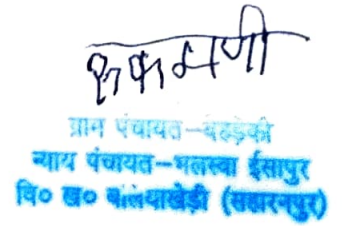 रुकमणी
ग्राम पंचायत-बहड़ेकी
न्याय पंचायत-भलस्वा ईसापुर
वि० ख० बलियाखेड़ी (सहारनपुर)